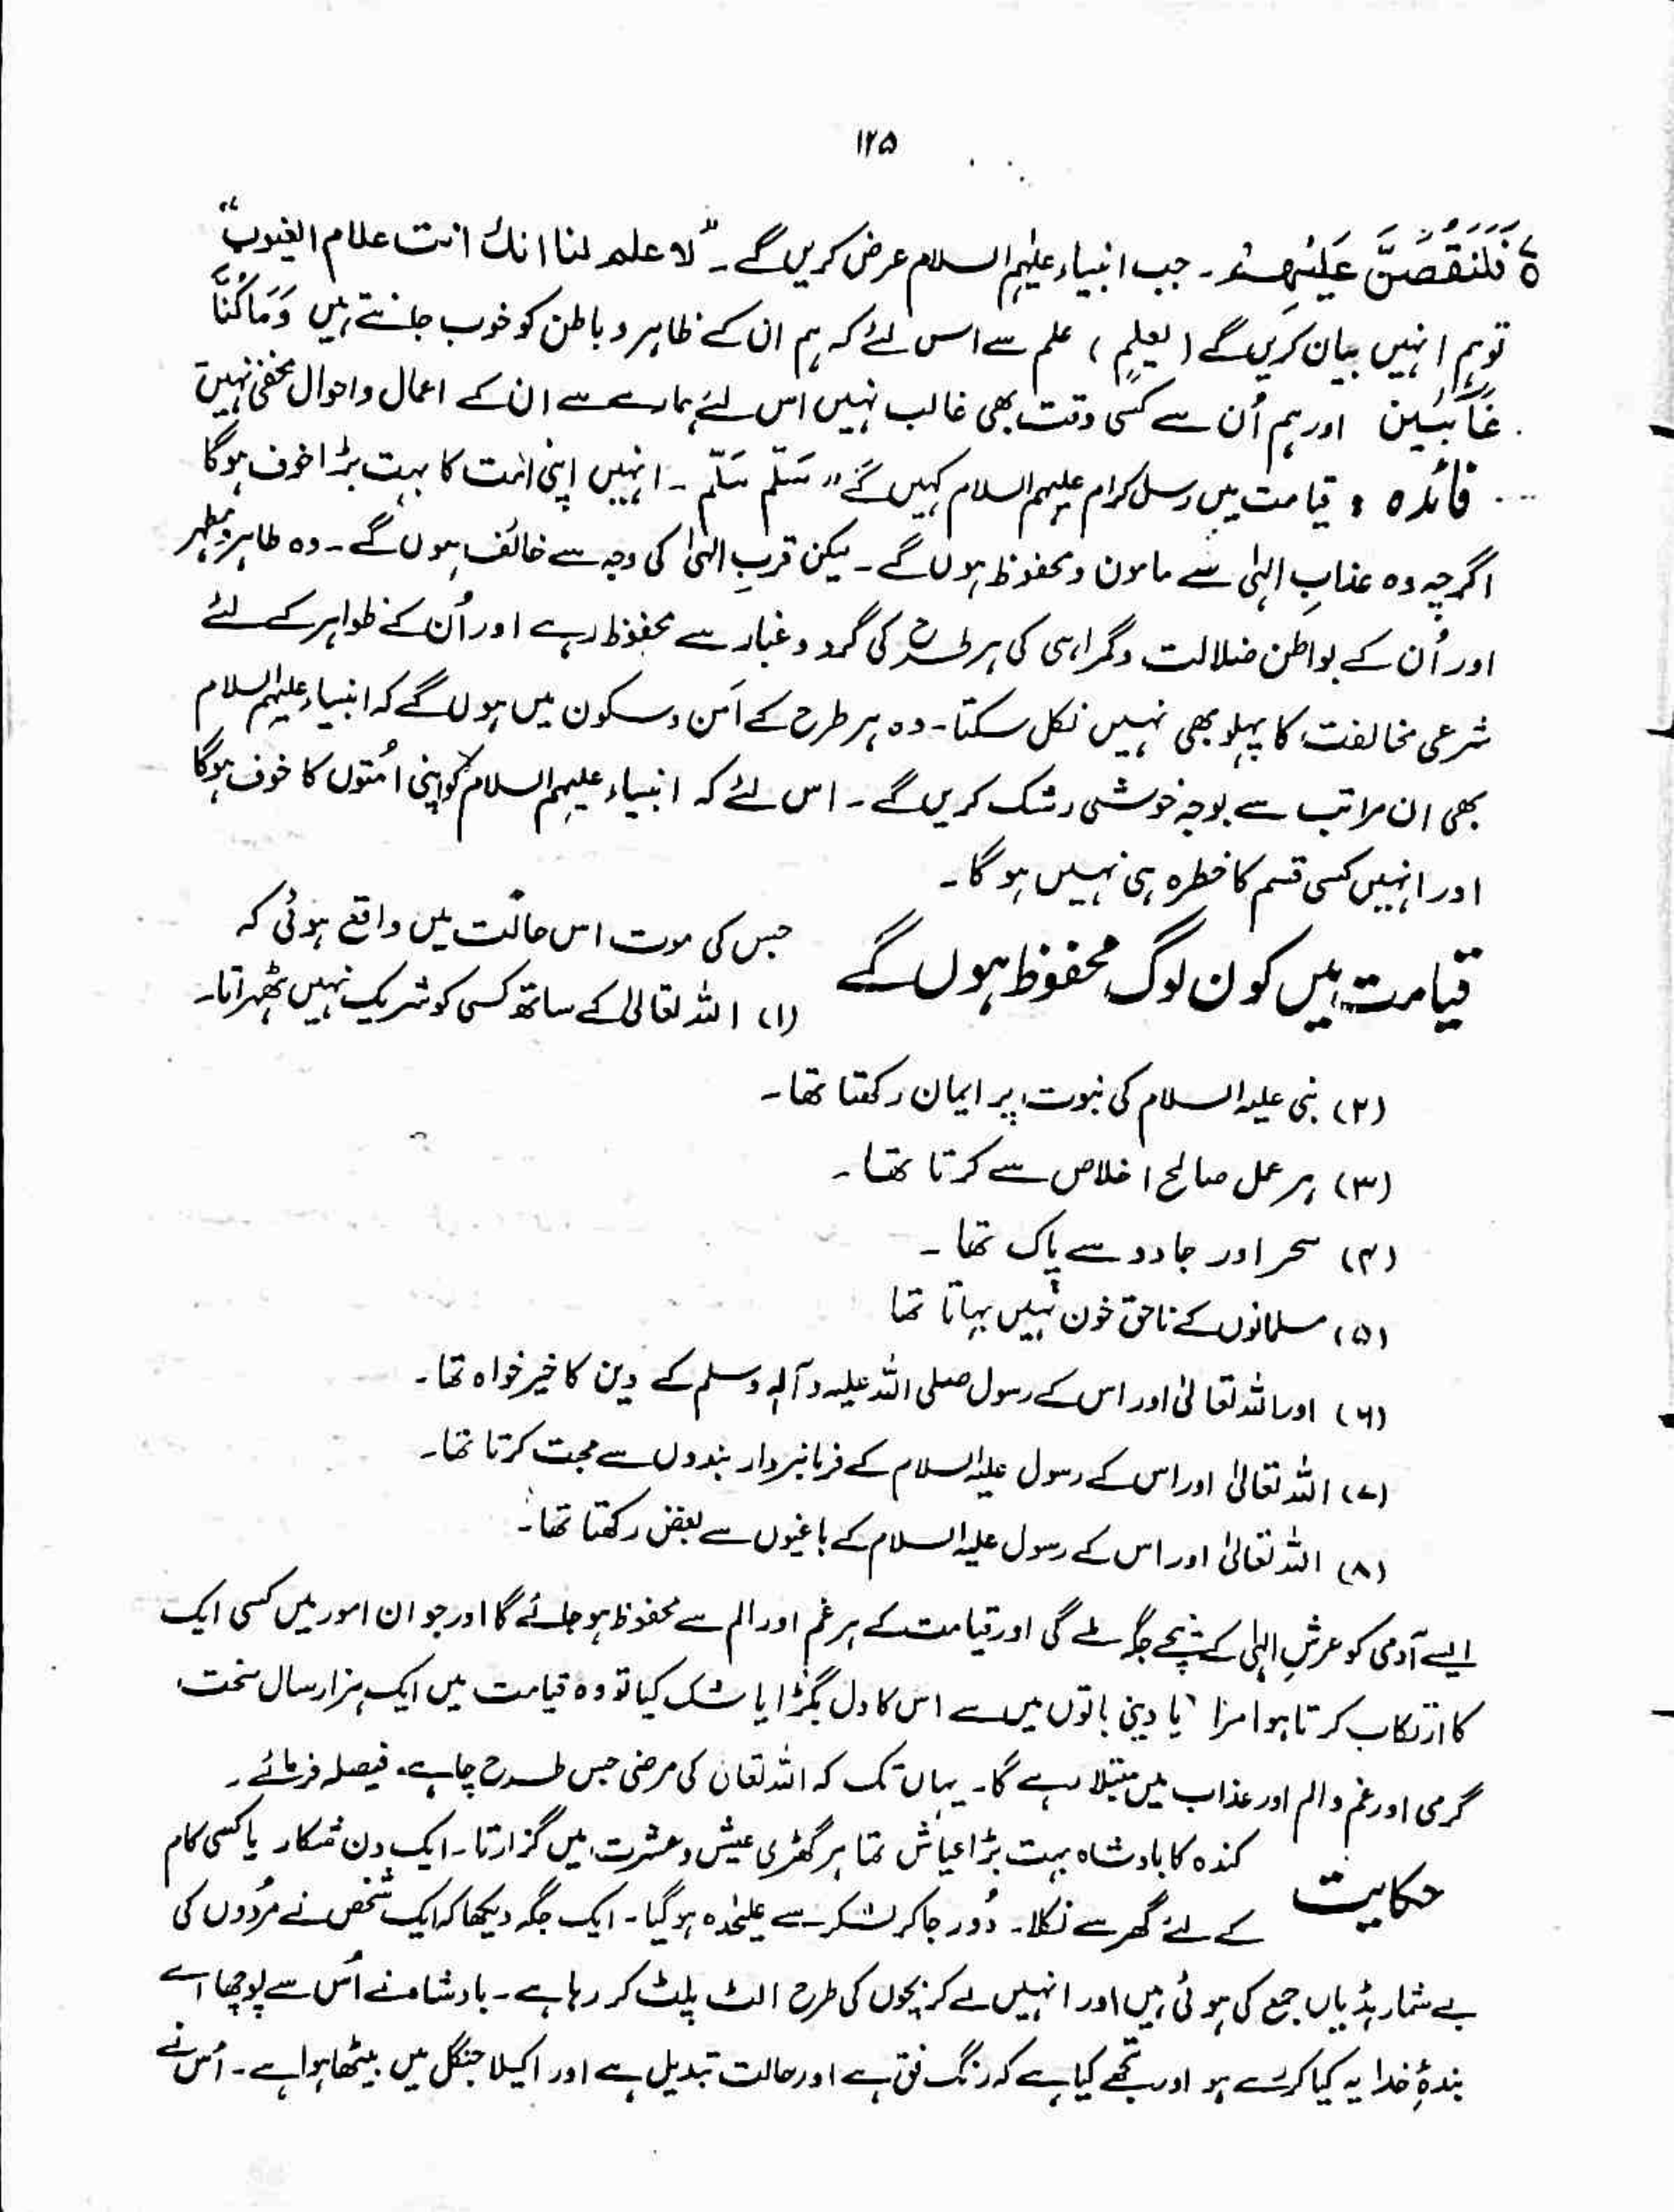 ۱۲۵
فَلَنَقُصَّنَّ عَلَیْہِمْ ۔ جب انبیاء علیہم السلام عرض کریں گے ۔ ”لا علم لنا انك انت علام الغیوب“
تو ہم انہیں بیان کریں گے ( بعلمٍ ) علم سے اس لئے کہ ہم ان کے ظاہر و باطن کو خوب جانتے ہیں وَمَا كُنَّا
غَآئِبِیْنَ اور ہم اُن سے کسی وقت بھی غالب نہیں اس لئے ہمارے سے ان کے اعمال و احوال مخفی نہیں
فائدہ : قیامت میں رسل کرام علیہم السلام کہیں گے ” سَلّم سَلّم ۔ انہیں اپنی امت کا بہت بڑا خوف ہوگا
اگرچہ وہ عذابِ الہٰی سے مامون و محفوظ ہوں گے ۔ لیکن قربِ الہٰی کی وجہ سے خائف ہوں گے ۔ وہ طاہر و مطہر
اور اُن کے بواطن ضلالت و گمراہی کی ہر طرح کی گرد و غبار سے محفوظ رہے اور اُن کے ظواہر کے لئے
شرعی مخالفت کا پہلو بھی نہیں نکل سکتا ۔ وہ ہر طرح کے اَمن و سکون میں ہوں گے کہ انبیاء علیہم السلام
بھی ان مراتب سے بوجہ خوشی رشک کریں گے ۔ اس لئے کہ انبیاء علیہم السلام کو اپنی اُمتوں کا خوف ہوگا
اور انہیں کسی قسم کا خطرہ ہی نہیں ہو گا ۔
قیامت میں کون لوگ محفوظ ہوں گے
جس کی موت اس حالت میں واقع ہوئی کہ
(۱) اللہ تعالیٰ کے ساتھ کسی کو شریک نہیں ٹھہراتا ۔
(۲) نبی علیہ السلام کی نبوت پر ایمان رکھتا تھا ۔
(۳) ہر عمل صالح اخلاص سے کرتا تھا ۔
(۴) سحر اور جادو سے پاک تھا ۔
(۵) مسلمانوں کے ناحق خون نہیں بہاتا تھا
(۶) اور اللہ تعالیٰ اور اس کے رسول صلی اللہ علیہ و آلہٖ وسلم کے دین کا خیر خواہ تھا ۔
(۷) اللہ تعالیٰ اور اس کے رسول علیہ السلام کے فرمانبردار بندوں سے محبت کرتا تھا ۔
(۸) اللہ تعالیٰ اور اس کے رسول علیہ السلام کے باغیوں سے بغض رکھتا تھا ۔
ایسے آدمی کو عرشِ الہٰی کے نیچے جگہ ملے گی اور قیامت کے ہر غم اور الم سے محفوظ ہو جائے گا اور جو ان امور میں کسی ایک
کا ارتکاب کرتا ہوا مرا یا دینی باتوں میں سے اس کا دل بگڑا یا شک کیا تو وہ قیامت میں ایک ہزار سال سخت
گرمی اور غم و الم اور عذاب میں مبتلا رہے گا ۔ یہاں تک کہ اللہ تعالیٰ کی مرضی جس طرح چاہے فیصلہ فرمائے ۔
حکایت
کندہ کا بادشاہ بہت بڑا عیاش تھا ہر گھڑی عیش و عشرت میں گزارتا ۔ ایک دن شکار یا کسی کام
کے لئے گھر سے نکلا ۔ دُور جا کر لشکر سے علیٰحدہ ہو گیا ۔ ایک جگہ دیکھا کہ ایک شخص نے مُردوں کی
بے شمار ہڈیاں جمع کی ہوئی ہیں اور انہیں لے کر بچوں کی طرح الٹ پلٹ کر رہا ہے ۔ بادشاہ نے اُس سے پوچھا اے
بندۂِ خدا یہ کیا کر رہے ہو اور تجھے کیا ہے کہ رنگ فق ہے اور حالت تبدیل ہے اور اکیلا جنگل میں بیٹھا ہوا ہے ۔ اُس نے